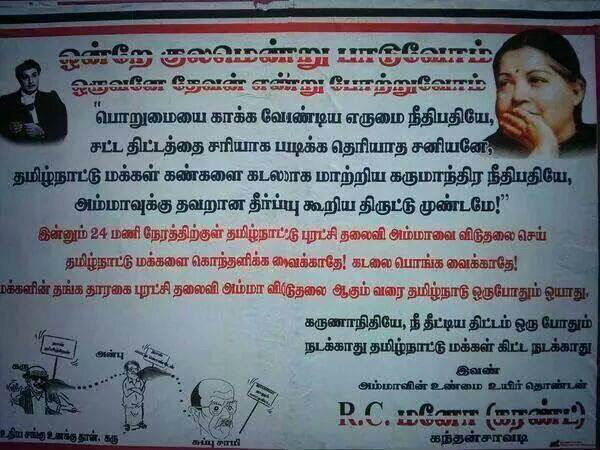 ஒன்றே குலமென்று பாடுவோம்
ஒருவனே தேவன் என்று போற்றுவோம்
"பொறுமையை காக்க வேண்டிய எருமை நீதிபதியே,
சட்ட திட்டத்தை சரியாக படிக்க தெரியாத சனியனே,
தமிழ்நாட்டு மக்கள் கண்களை கடலாக மாற்றிய கருமாந்திர நீதிபதியே,
அம்மாவுக்கு தவறான தீர்ப்பு கூறிய திருட்டு முண்டமே!"
இன்னும் 24 மணி நேரத்திற்குள் தமிழ்நாட்டு புரட்சி தலைவி அம்மாவை விடுதலை செய்
தமிழ்நாட்டு மக்களை கொந்தளிக்க வைக்காதே! கடலை பொங்க வைக்காதே!
மக்களின் தங்க தாரகை புரட்சி தலைவி அம்மா விடுதலை ஆகும் வரை தமிழ்நாடு ஒருபோதும் ஓயாது.
கருணாநிதியே, நீ தீட்டிய திட்டம் ஒரு போதும்
நடக்காது தமிழ்நாட்டு மக்கள் கிட்ட நடக்காது
இவண்
அம்மாவின் உண்மை உயிர் தொண்டன்
R.C. மனோ (கரண்ட்)
கந்தன்சாவடி
கரு
அன்பு
சுப்பு சாமி
உதிய சங்கு உனக்கு தான், கரு